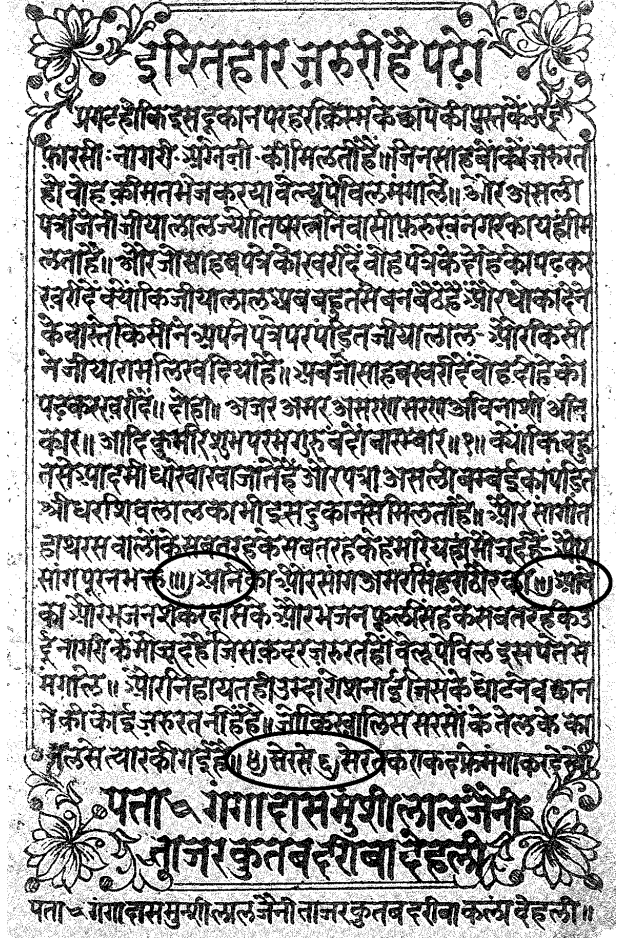 इश्तिहार ज़रुरी है पढ़ो
प्रगट हो कि इस दूकान पर हर किस्म के छापे की पुस्तकें उरदू
फारसी नागरी अंग्रेजी की मिलती हैं॥ जिन साहबों को ज़रुरत
हो वोह क़ीमत भेज कर या वेल्यूपेविल मगालें॥ और असली
पत्रा जैनी जीयालाल ज्योतिषरत्न निवासी फ़रुखनगर का यहां मि
लता है॥ और जो साहब पत्रे को खरीदें वोह पत्रे के दोहे को पढ़ कर
खरीदें क्योंकि जीयालाल अब बहुत से बन बैठे हैं और धोका देने
के वास्ते किसी ने अपने पत्रे पर पंडित जीयालाल और किसी
ने जीयाराम लिख दिया है॥ अब जो साहब खरीदें वोह दोहे को
पढ़ कर खरीदें॥ दोहा॥ अजर अमर असरण सरण अविनाशी अवि
कार॥ आदि कुमरि शुभ परम गुरु बंदों बारम्बार॥१॥ क्योंकि बहु
त से आदमी धोखा खा जाते हैं और पत्रा असली बम्बई का पंडित
श्रीधर शिवलाल का भी इस दुकान से मिलता है॥ और सांगीत
हाथरस वालों के सब तरह के सब तरह के हमारे यहां मौजूद हैं और
सांग पूरनभक्त ॥।) आने का और सांग अमरसिंह राठौर का ॥) आने
का और भजन शंकरदास के और भजन फूलसिंह के सब तरह के उ
ई नागरी के मौजूद हैं जिस क़दर ज़रुरत हो वेलूपेविल इस पते से
मंगालें॥ और निहायत ही उम्दा रोशनाई जिसके घोटने व छान
ने की कोई ज़रुरत नहीं है॥ जो कि खालिस सरसों के तेल के का
जल से त्यार की गई है॥ ४) सेर से ६) सेर तक एक दफ़े मंगाकर देखो
पता गंगादास मुंशीलाल जैनी
ताजर कुतब दरीबा देहली
पता गंगादास मुन्शीलाल जैनी ताजर कुतब दरीबा कलां देहली॥